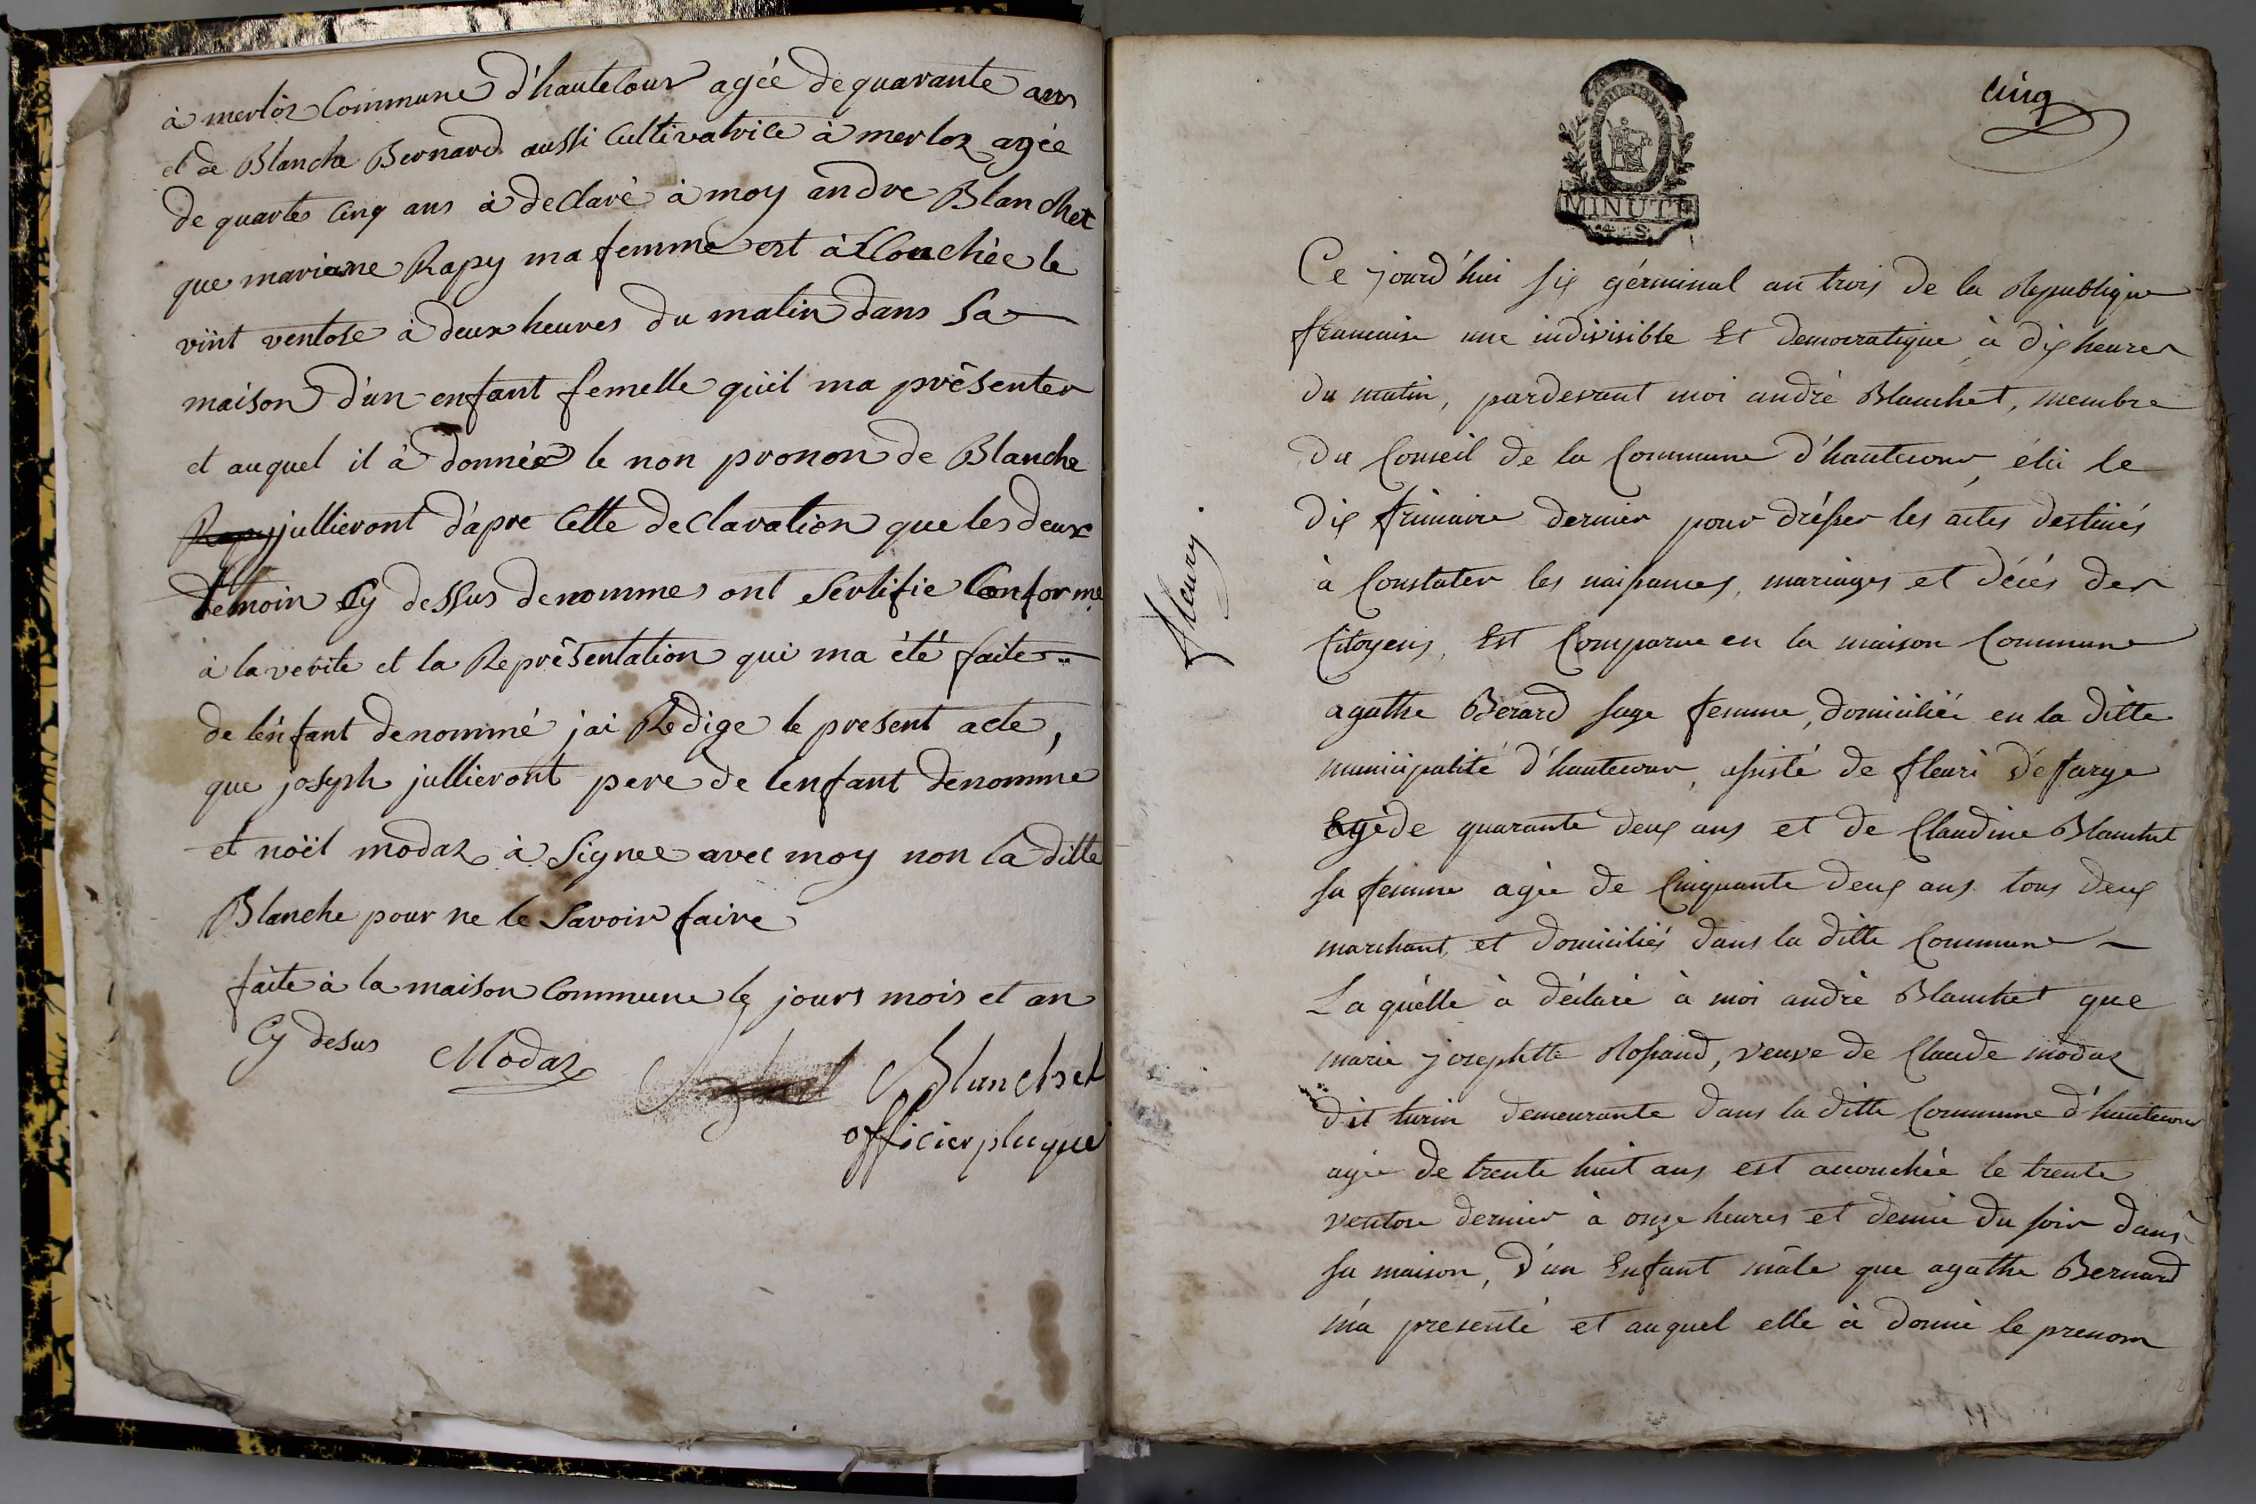 à merloz Commune d'hautecour agée de quarante ans
et de Blanche Bernard aussi Cultivatrice à merloz agée
de quarte Cinq ans à declaré à moy andre Blanchet
que mariane Rapy ma femme est àCCouchée le
vint ventose à deux heures du matin dans sa
maison d'un enfant femelle quil ma présenter
et auquel il à donnée le non pronon de Blanche
Rapy jullieront d'apre Cette declaration que les deux
temoin Cy dessus denommes ont Sertifie Conforme
à la verite et la Représentation qui ma été faite
de lénfant denommé jai Redige le present acte,
que joseph jullieront pere de lenfant denomme
et noël modaz à signee avec moy non la ditte
Blanche pour ne le savoir faire
faite à la maison Commune le jours mois et an
Cy desus Modaz Blanchet
officier plugue
cinq
MINUTE
4 S
Ce jourd'hui six gérminal an trois de la Republique
francaise une indivisible Et democratique à dix heures
du matin, pardevant moi andré Blanchet, membre
du Conseil de la Commune d'hautecour, élu le
dix frimaire dernier pour drésser les actes destinés
à Constater les naissances, mariages et décés des
Citoyens, Est Comparue en la maison Commune
agathe Berard sage femme, domiciliée en la ditte
municipalité d'hautecour, assisté de fleuri défarge
Agé de quarante deux ans et de Claudine Blanchet
sa femme agée de Cinquante deux ans tous deux
marchant, et domiciliés dans la ditte Commune
La quélle à déclaré à moi andré Blanchet que
marie josephtte Rossand, veuve de Claude modaz
dit turin demeurante dans la ditte Commune d'hautecour
agée de trente huit ans est accouchée le trente
ventose dernier à onze heures et demie du soir dans
sa maison, d'un Enfant mâle que agathe Bernard
m'a presenté et auquel elle à donné le prenom
fleury.